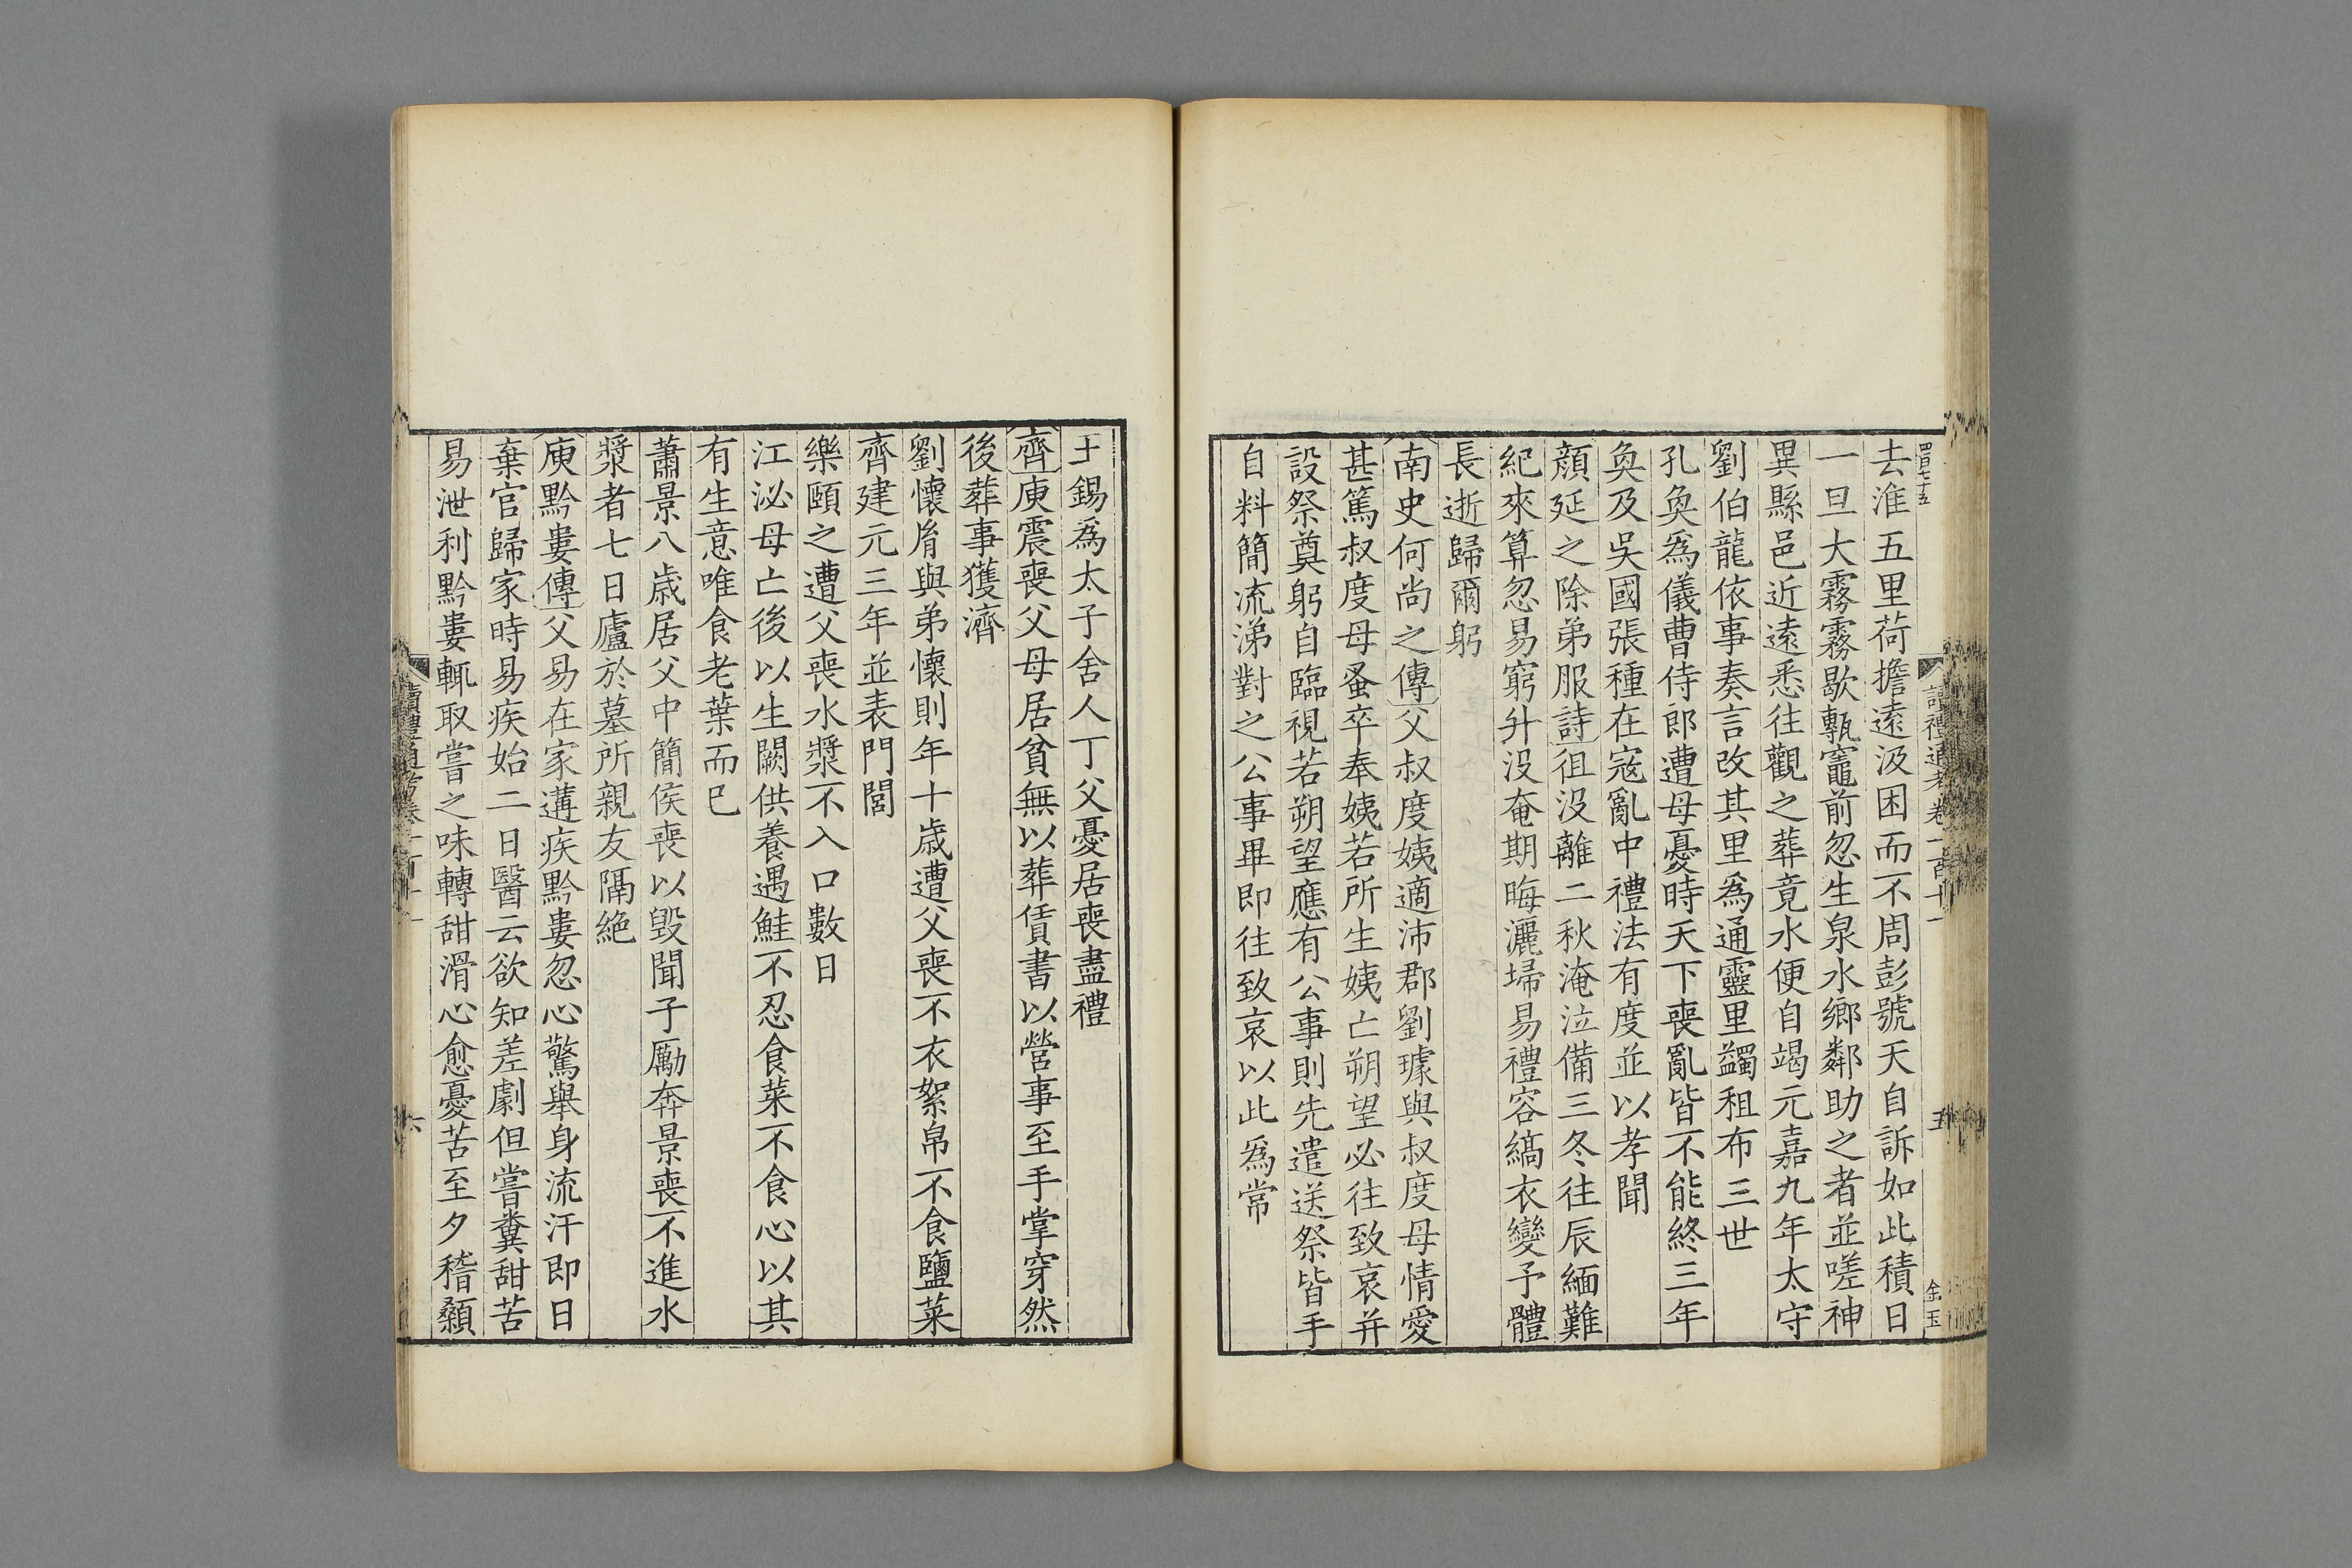 四百七十五
讀禮通考卷一百十一
五
金玉
去淮五里荷擔遠汲困而不周彭號天自訴如此積日
一旦大霧霧歇甎竈前忽生泉水鄉鄰助之者並嗟神
異縣邑近遠悉往觀之葬竟水便自竭元嘉九年太守
劉伯龍依事奏言改其里爲通靈里蠲租布三世
孔奐爲儀曹侍郎遭母憂時天下喪亂皆不能終三年
奐及吳國張種在寇亂中禮法有度並以孝聞
顏延之除弟服詩徂没離二秋淹泣備三冬往辰緬難
紀來算忽易窮升没奄期晦灑埽易禮容縞衣變予體
長逝歸爾躬
南史何尚之傳父叔度姨適沛郡劉璩與叔度母情愛
甚篤叔度母蚤卒奉姨若所生姨亡朔望必往致哀并
設祭奠躬自臨視若朔望應有公事則先遣送祭皆手
自料簡流涕對之公事畢即往致哀以此爲常
王錫爲太子舍人丁父憂居喪盡禮
齊庾震喪父母居貧無以葬賃書以營事至手掌穿然
後葬事獲濟
劉懷胤與弟懷則年十歲遭父喪不衣絮帛不食鹽菜
齊建元三年並表門閭
樂頤之遭父喪水漿不入口數日
江泌母亡後以生闕供養遇鮭不忍食菜不食心以其
有生意唯食老葉而已
蕭景八歲居父中簡侯喪以毀聞子勵奔景喪不進水
漿者七日廬於墓所親友隔絶
庾黔婁傳父易在家遘疾黔婁忽心驚舉身流汗即日
棄官歸家時易疾始二日醫云欲知差劇但嘗糞甜苦
易泄利黔婁輒取嘗之味轉甜滑心愈憂苦至夕稽顙
讀禮通考卷一百十一
六